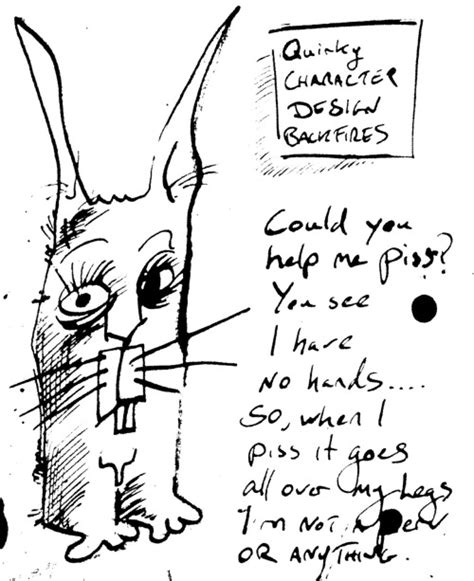 Quirky
CHARACTER
DESIGN
BACKFIRES
Could you
help me piss?
You see
I have
no hands....
So, when I
piss it goes
all over my legs
I'm NOT A perv
OR ANYTHING.